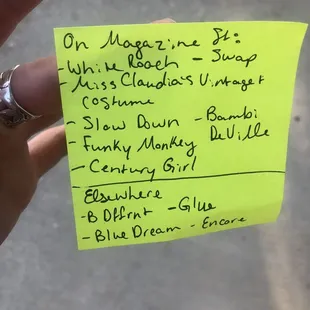 On Magazine St:
- White Roach - Swap
- Miss Claudia's Vintage &
Costume
- Slow Down - Bambi
DeVille
- Funky Monkey
- Century Girl
Elsewhere
- B Dffrnt - Glue
- Blue Dream - Encore